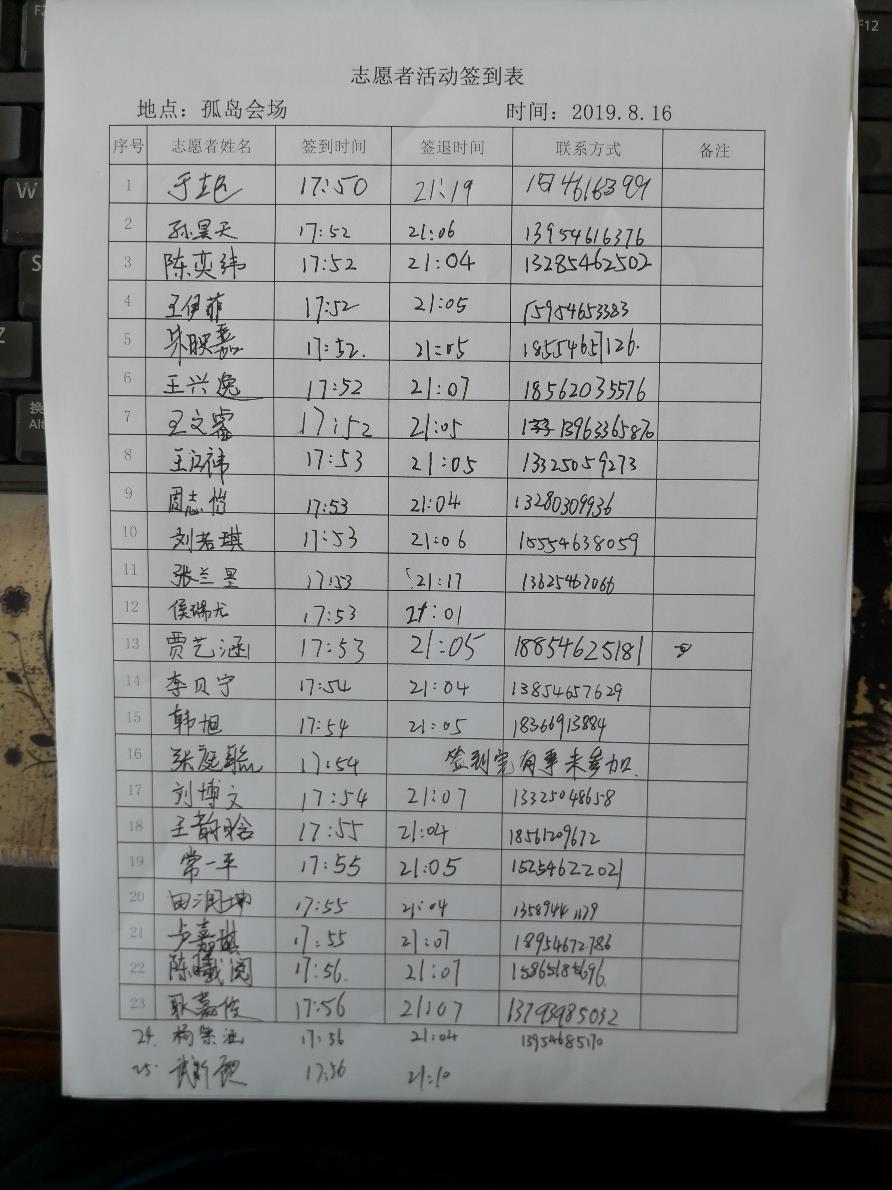 志愿者活动签到表
地点：孤岛会场 时间：2019.8.16
序号 志愿者姓名 签到时间 签退时间 联系方式 备注
1 17:50 21:19
2 孙昊天 17:52 21:06 13954616376
3 陈奕纬 17:52 21:04 13285462502
4 王伊菲 17:52 21:05 15954653383
5 朱映嘉 17:52. 21:05 18554657126.
6 王兴逸 17:52 21:07 18562035576
7 王文睿 17:52 21:05 13963365876
8 王江祎 17:53 21:05 13325059273
9 周志恺 17:53 21:04 13280309936
10 刘若琪 17:53 21:06 15554638059
11 张兰墨 17:53 21:17 13625462066
12 侯瑞尤 17:53 21:01
13 贾艺涵 17:53 21:05 18854625181
14 李贝宁 17:54 21:04 13854657629
15 韩旭 17:54 21:05 18366913884
16 张庭毓 17:54 签到完有事未参加.
17 刘博文 17:54 21:07 13325048658
18 王韵晗 17:55 21:04 18561209672
19 常一平 17:55 21:05 15254622021
20 田润坤 17:55 21:04
21 卢嘉琪 17:55 21:07 18954672786
22 陈曦阅 17:56. 21:07
23 耿嘉俊 17:56 21:07 13793985032
24. 17:56 21:04 13954685170
25. 17:56 21:10